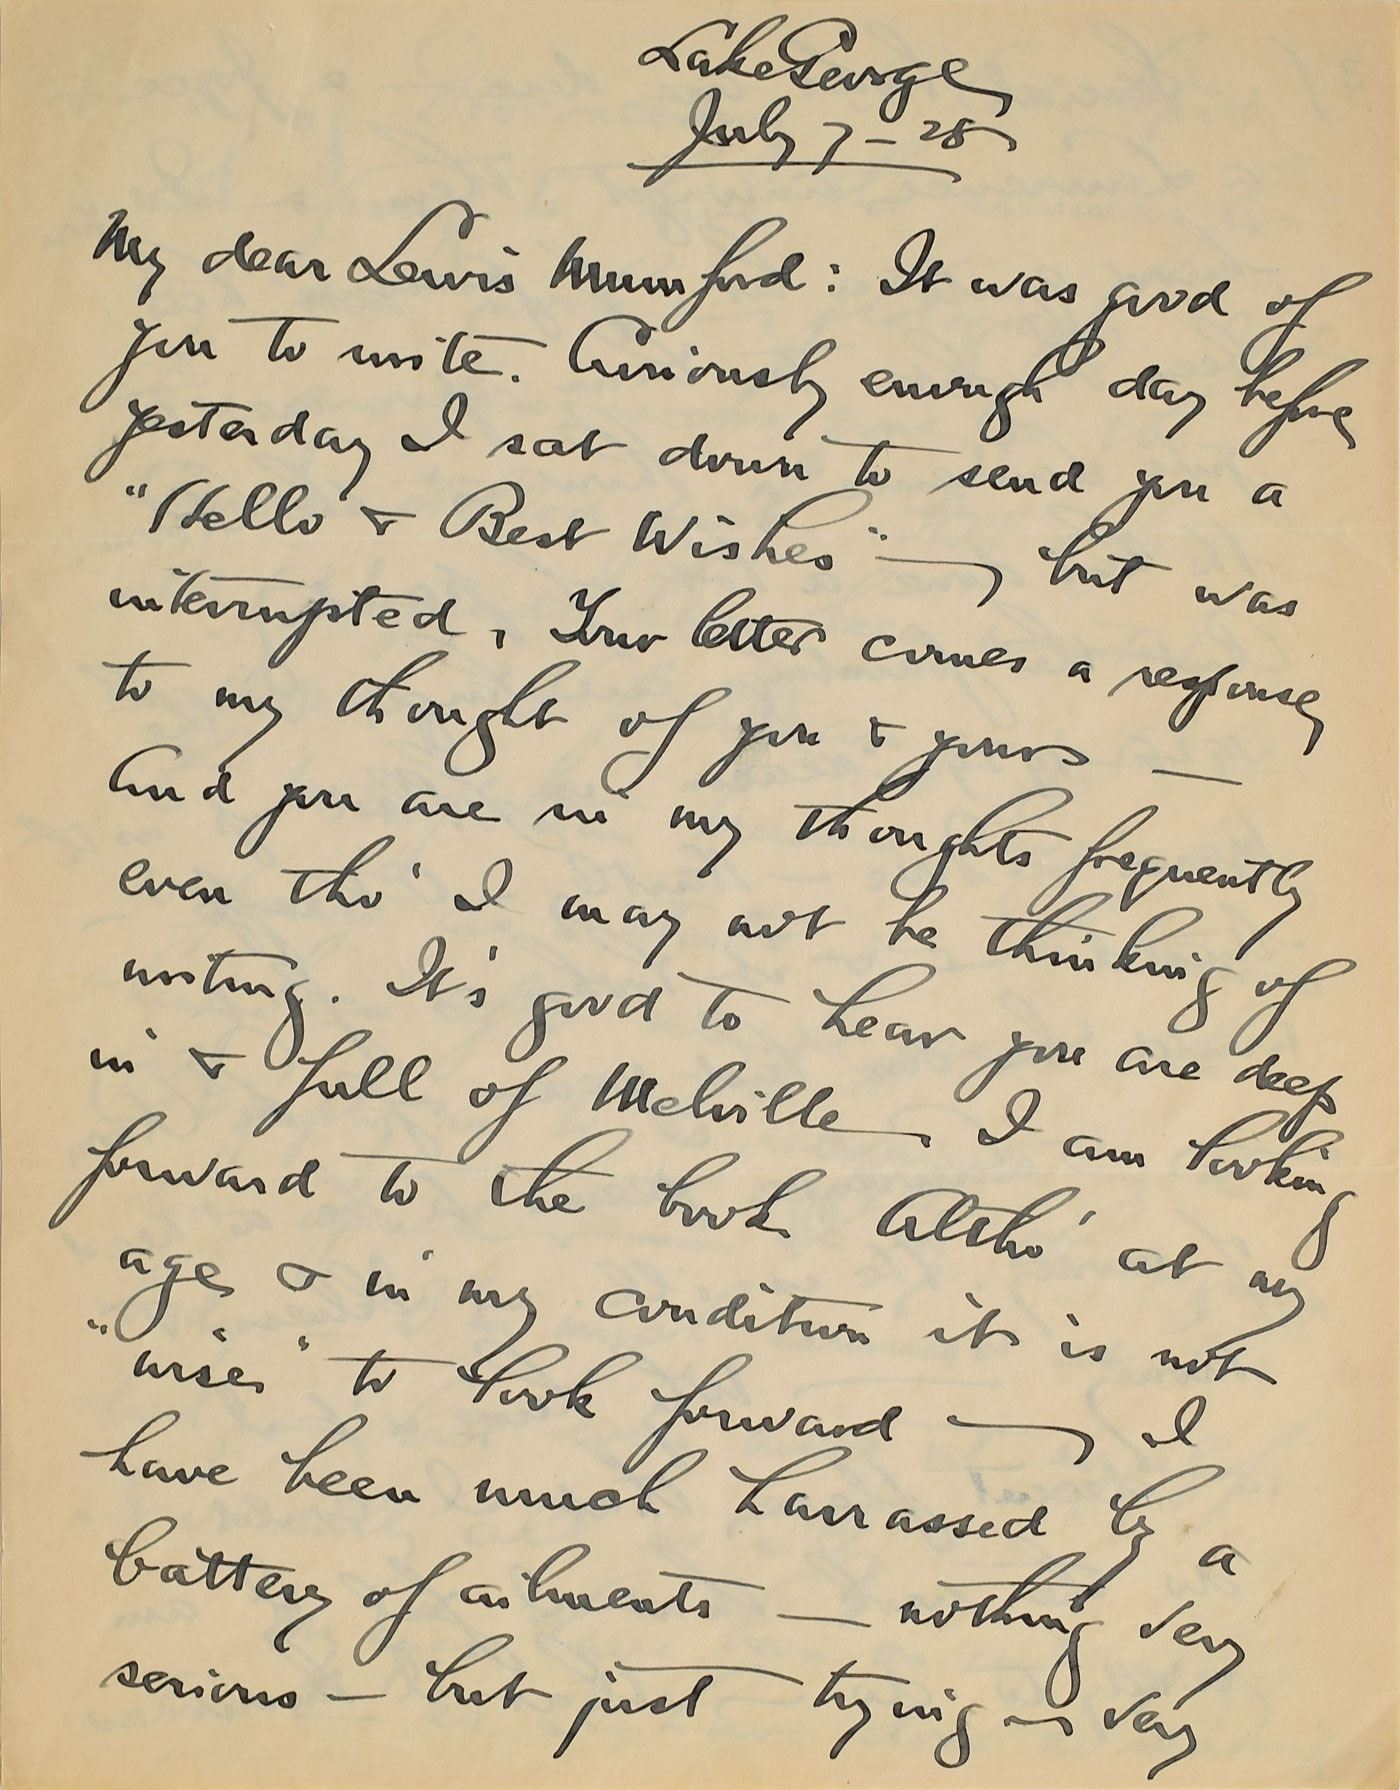 Lake George
July 7 – 28
My dear Lewis Mumford : It was good of
you to write. Curiously enough day before
yesterday I sat down to send you a
"Hello & Best Wishes" — but was
interrupted. Your letter comes a response
to my thought of you & yours —
And you are in my thoughts frequently
even tho' I may not be thinking of
writing. It's good to hear you are deep
in & full of Melville. I am looking
forward to the book Altho' at my
age & in my condition it is not
"wise" to look forward — I
have been much harrassed by a
battery of ailments — nothing very
serious — but just trying — very